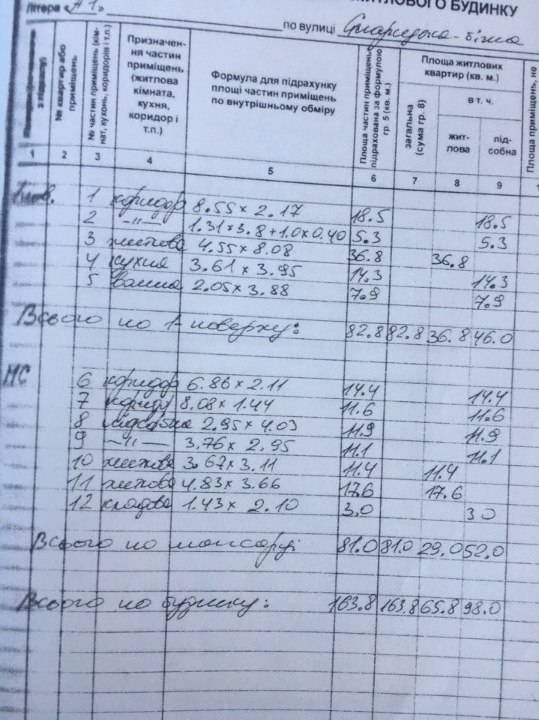 ЖИТЛОВОГО БУДИНКУ
Літера «А1» по вулиці
№ квартир або приміщень
№ частин приміщень (кімнат, кухонь, коридорів і т.п.)
Призначення частин приміщень (житлова кімната, кухня, коридор і т.п.)
Формула для підрахунку площі частин приміщень по внутрішньому обміру
Площа частин приміщень підрахована за формулою гр. 5 (кв. м.)
Площа житлових квартир (кв. м.)
загальна (сума гр. 8)
в т. ч.
житлова
підсобна
Площа приміщень, не
1 2 3 4 5 6 7 8 9
1 пов. 1 коридор 8.55 x 2.17 18.5 18.5
2 —"— 1.31 x 3.8 + 1.0 x 0.40 5.3 5.3
3 житлова 4.55 x 8.08 36.8 36.8
4 кухня 3.61 x 3.95 14.3 14.3
5 ванна 2.05 x 3.88 7.9 7.9
Всього по 1 поверху: 82.8 82.8 36.8 46.0
МС 6 коридор 6.86 x 2.11 14.4 14.4
7 8.08 x 1.44 11.6 11.6
8 підсобна 2.95 x 4.03 11.9 11.9
9 —"— 3.76 x 2.95 11.1 11.1
10 житлова 3.67 x 3.11 11.4 11.4
11 житлова 4.83 x 3.66 17.6 17.6
12 кладова 1.43 x 2.10 3.0 3.0
Всього по мансарді 81.0 81.0 29.0 52.0
Всього по будинку: 163.8 163.8 65.8 98.0